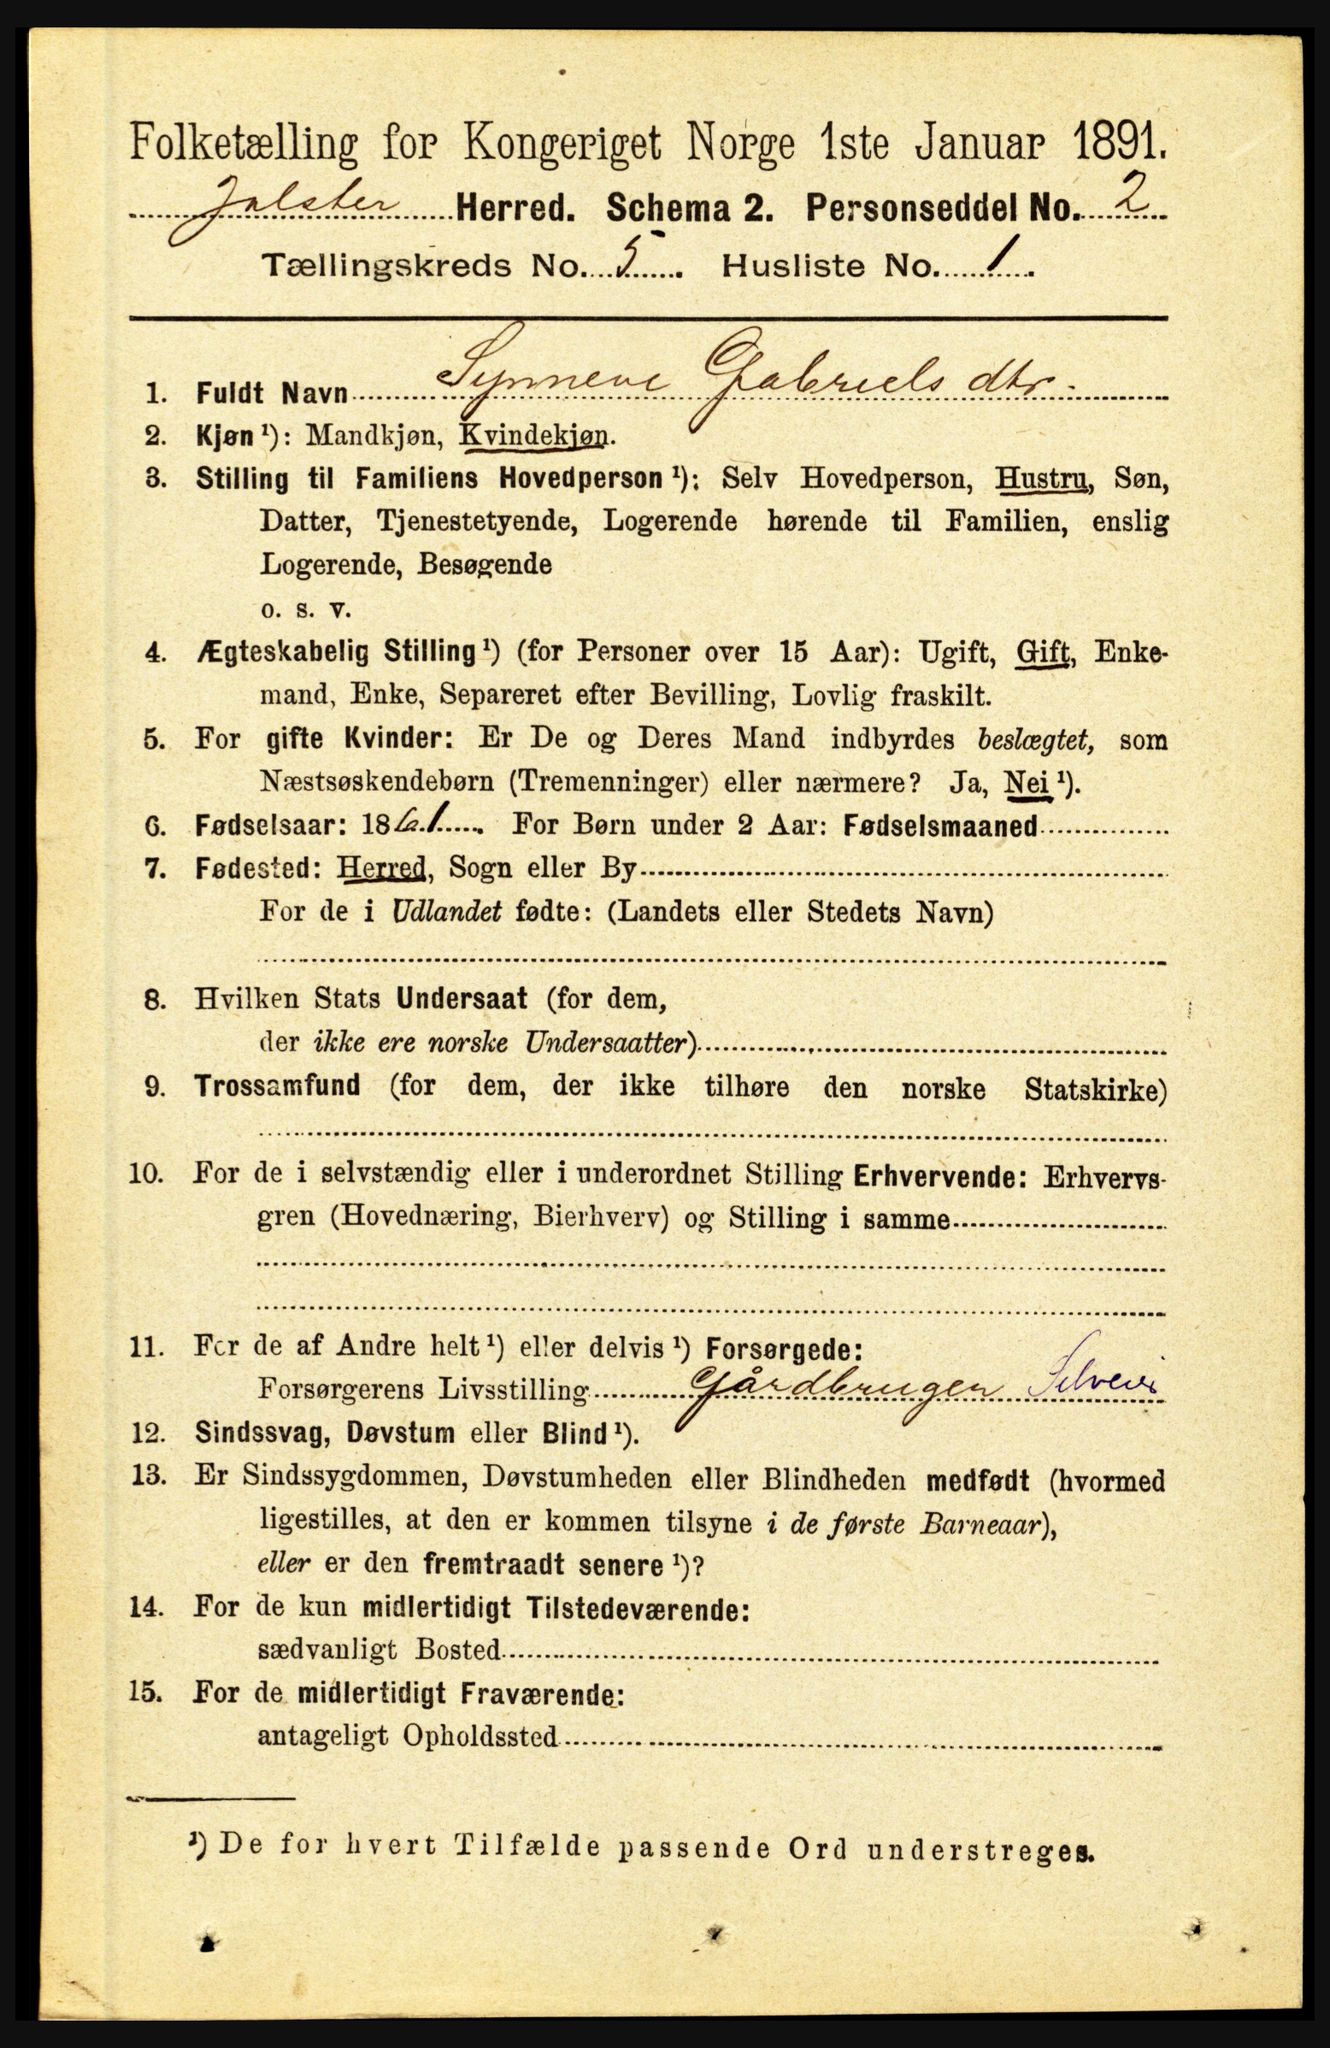 Folketælling for Kongeriget Norge 1ste Januar 1891.
Jølster Herred. Schema 2. Personseddel No. 2
Tællingskreds No. 5. Husliste No. 1.
1. Fuldt Navn Synneve Gabriels dtr.
2. Kjøn¹): Mandkjøn, Kvindekjøn.
3. Stilling til Familiens Hovedperson¹): Selv Hovedperson, Hustru, Søn,
Datter, Tjenestetyende, Logerende hørende til Familien, enslig
Logerende, Besøgende
o. s. v.
4. Ægteskabelig Stilling¹) (for Personer over 15 Aar): Ugift, Gift, Enke-
mand, Enke, Separeret efter Bevilling, Lovlig fraskilt.
5. For gifte Kvinder: Er De og Deres Mand indbyrdes beslægtet, som
Næstsøskendebørn (Tremenninger) eller nærmere? Ja, Nei¹).
6. Fødselsaar: 1861. For Børn under 2 Aar: Fødselsmaaned
7. Fødested: Herred, Sogn eller By
For de i Udlandet fødte: (Landets eller Stedets Navn)
8. Hvilken Stats Undersaat (for dem,
der ikke ere norske Undersaatter)
9. Trossamfund (for dem, der ikke tilhøre den norske Statskirke)
10. For de i selvstændig eller i underordnet Stilling Erhvervende: Erhvervs-
gren (Hovednæring, Bierhverv) og Stilling i samme
11. For de af Andre helt¹) eller delvis¹) Forsørgede:
Forsørgerens Livsstilling Gårdbruger Selveier
12. Sindssvag, Døvstum eller Blind¹).
13. Er Sindssygdommen, Døvstumheden eller Blindheden medfødt (hvormed
ligestilles, at den er kommen tilsyne i de første Barneaar),
eller er den fremtraadt senere¹)?
14. For de kun midlertidigt Tilstedeværende:
sædvanligt Bosted
15. For de midlertidigt Fraværende:
antageligt Opholdssted
¹) De for hvert Tilfælde passende Ord understreges.